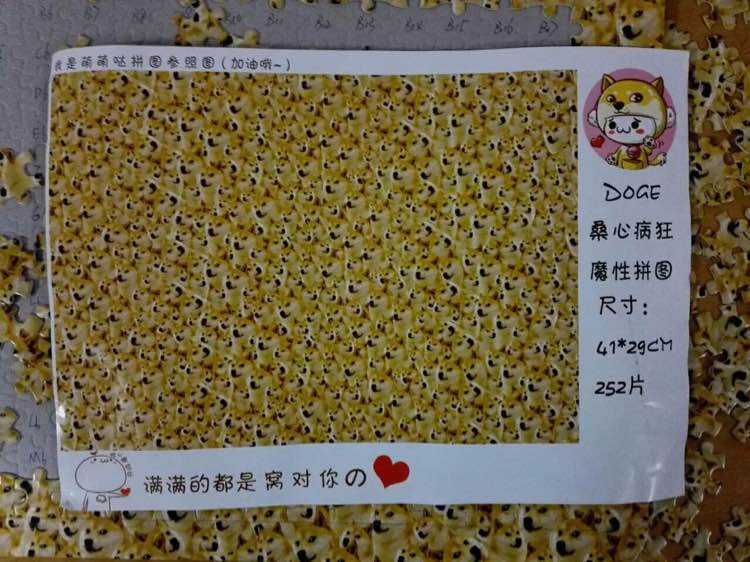 我是萌萌哒拼图参照图(加油哦~)
DOGE
桑心病狂
魔性拼图
尺寸:
41*29CM
252片
满满的都是窝对你の